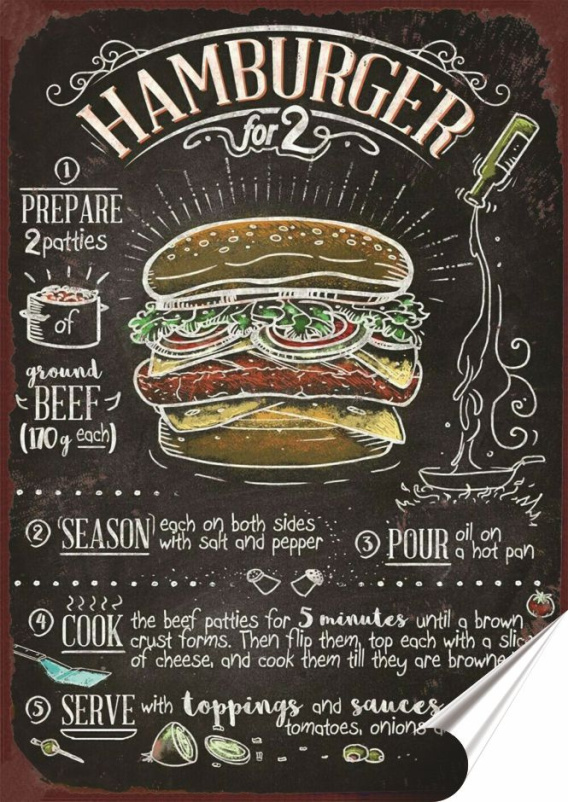 HAMBURGER
for 2
1
PREPARE
2 patties
of
ground
BEEF
(170 g each)
2 SEASON each on both sides
with salt and pepper
3 POUR oil on
a hot pan
4 COOK the beef patties for 5 minutes until a brown
crust forms. Then flip them, top each with a
of cheese, and cook them till they are
5 SERVE with toppings and sauces
tomatoes, onions